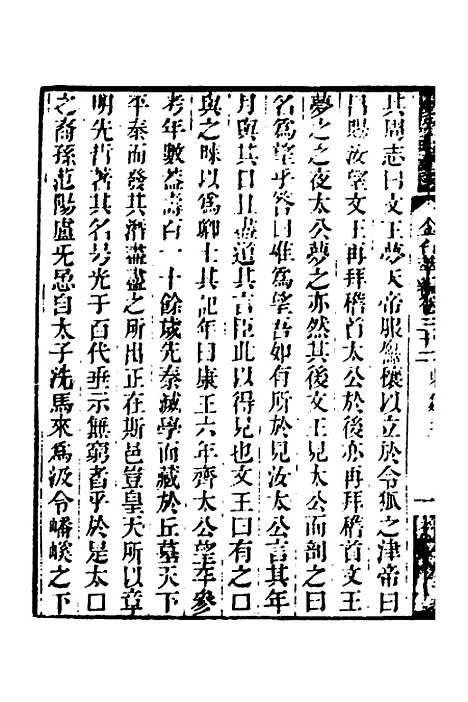 其周志曰文王夢天帝服玄禳以立於令狐之津帝曰
昌賜汝望文王再拜稽首太公於後亦再拜稽首文王
夢之之夜太公夢之亦然其後文王見太公而訓之曰
名為望乎答曰唯為望吾如有所於見汝太公言其年
月與其日且盡道其言臣此以得見也文王曰有之口
與之歸以為卿士其記年曰康王六年齊太公望卒參
考年數蓋壽百一十餘歲先秦滅學而藏於丘墓天下
平泰而發其潛書書之所出正在斯邑豈皇天所以章
明先哲著其名号光于百代垂示無窮者乎於是太口
之裔孫范陽盧无忌自太子洗馬來為汲令磻谿之下
金石萃編卷三十二
一